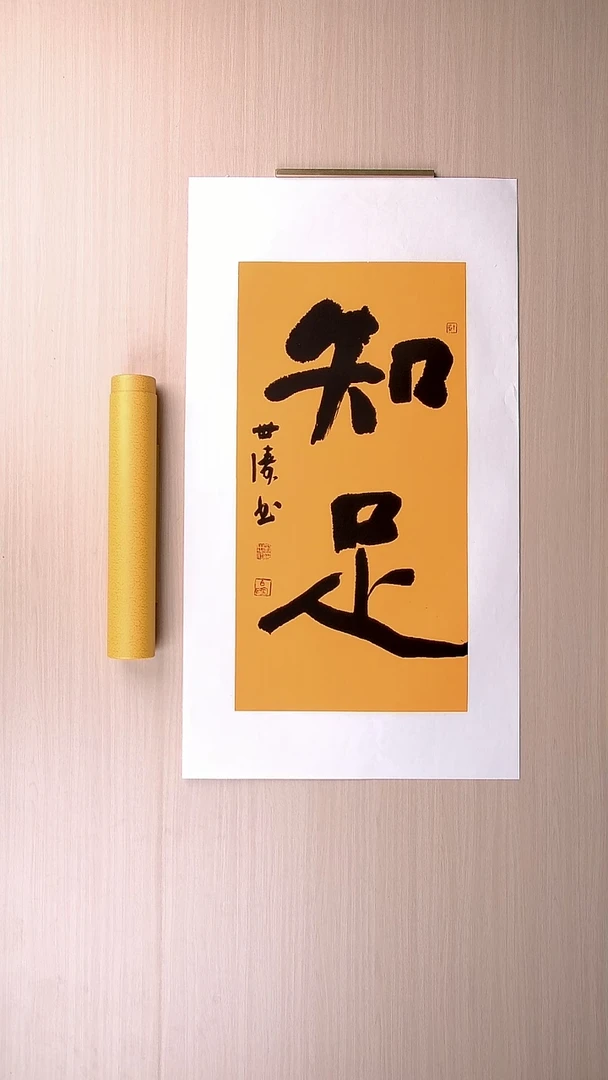 知足
世濤书